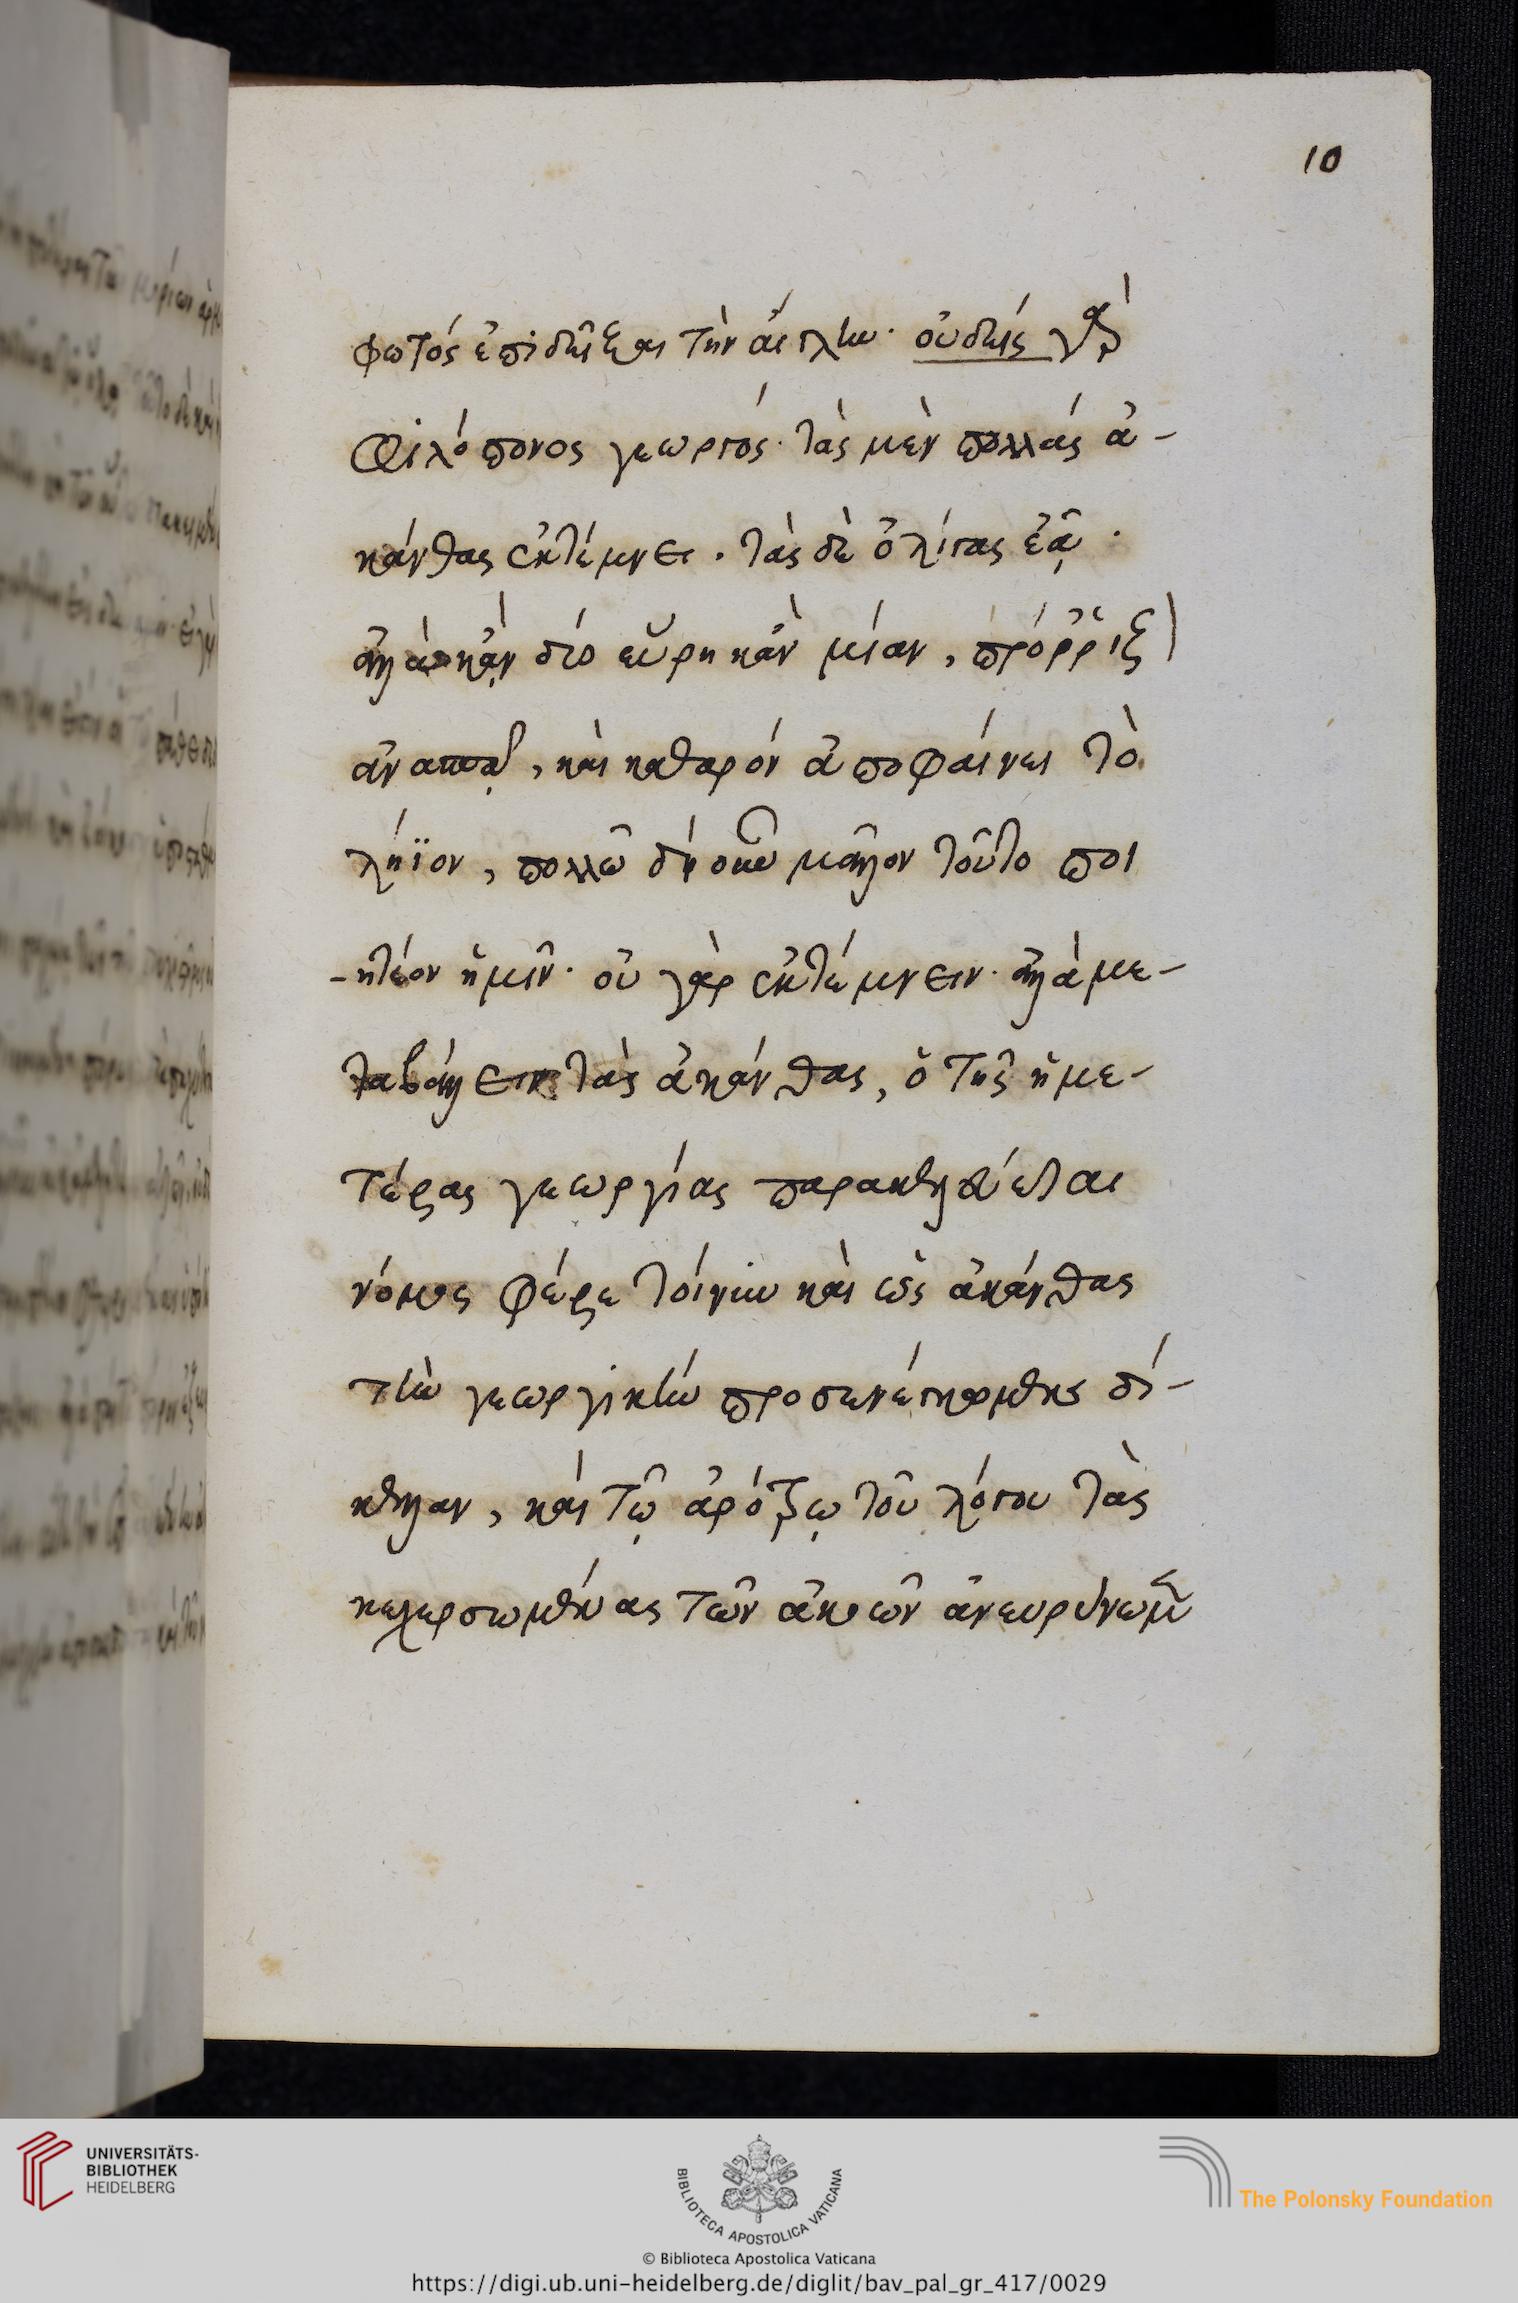 10
φωτός ἐπιδεῖξαι τὴν αἴγλην· οὐδεὶς γὰρ
φιλόπονος γεωργός· τὰς μὲν πολλάς ἀ-
κάνθας ἐκτέμνει. τὰς δὲ ὀλίγας ἐᾷ·
ἀλλὰ κἂν δύο εὕρη κἂν μίαν, πρόρριζ
ἀνασπᾷ, καὶ καθαρόν ἀποφαίνει τὸ
λήϊον, πολλῶ δὴ οὖν μᾶλλον τοῦτο ποι
-ητέον ἡμῖν· οὐ γὰρ ἐκτέμνειν· ἀλλά με-
ταβάλλειν τὰς ἀκάνθας, ὁ τῆς ἡμε-
τέρας γεωργίας παρακελεύεται
νόμος φέρε τοίνυν καὶ εἰς ἀκάνθας
τὴν γεωργικὴν προσενέγκωμεν δί-
κελλαν, καὶ τῷ ἀρότρῳ τοῦ λόγου τὰς
κεχερσωμένας τῶν ἀκοῶν ἀνευρύνωμ
UNIVERSITÄTS-
BIBLIOTHEK
HEIDELBERG
BIBLIOTECA APOSTOLICA VATICANA
The Polonsky Foundation
© Biblioteca Apostolica Vaticana
https://digi.ub.uni-heidelberg.de/diglit/bav_pal_gr_417/0029